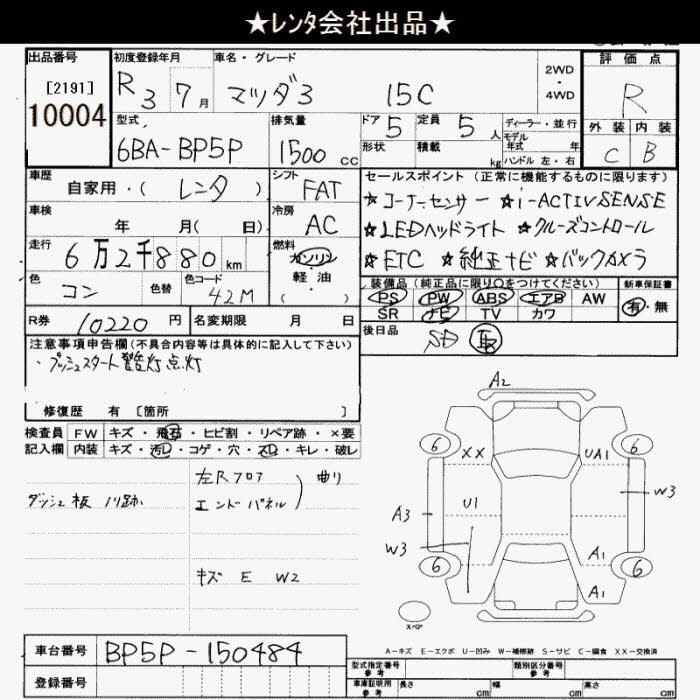 ★レンタ会社出品★
出品番号
[2191]
10004
初度登録年月
R3 7月
車名・グレード
マツダ3 15C
2WD
・
4WD
評価点
R
外装 内装
C B
型式
6BA-BP5P
排気量
1500 CC
ドア 5
形状
定員 5 人
積載 kg
ディーラー・並行
モデル
年式 年
ハンドル 左・右
車歴
自家用・(レンタ)
シフト
FAT
車検
年 月( 日)
冷房
AC
走行
6万2千880 km
燃料
ガソリン
軽油
( )
色
コン
色替
色コード
42M
R券 10220 円
名変期限 月 日
セールスポイント(正常に機能するものに限ります)
★コーナーセンサー ★i-ACTIVSENSE
★LEDヘッドライト ★クルーズコントロール
★ETC ★純正ナビ ★バックカメラ
装備品(純正品に限り○をつけてください)
PS PW ABS エアB AW
SR ナビ TV カワ
新車保証書
有・無
後日品
SD 取
注意事項申告欄(不具合内容等は具体的に記入して下さい)
・プッシュスタート警告灯点灯
修復歴 有 [箇所 ]
検査員
記入欄
FW キズ・飛石・ヒビ割・リペア跡・×要
内装 キズ・汚レ・コゲ・穴・スレ・キレ・破レ
左Rフロア
エンドパネル
曲り
ダッシュ板 ノリ跡
キズ E W2
A2
6
XX
UA1
6
A3
U1
W3
W3
6
A1
6
A1
スペア
A-キズ E-エクボ U-凹み W-補修跡 S-サビ C-腐食 XX-交換済
車台番号 BP5P-150484
登録番号
型式指定番号
参考
類別区分番号
参考
車庫証明用
参考
長さ cm 幅 cm 高さ cm